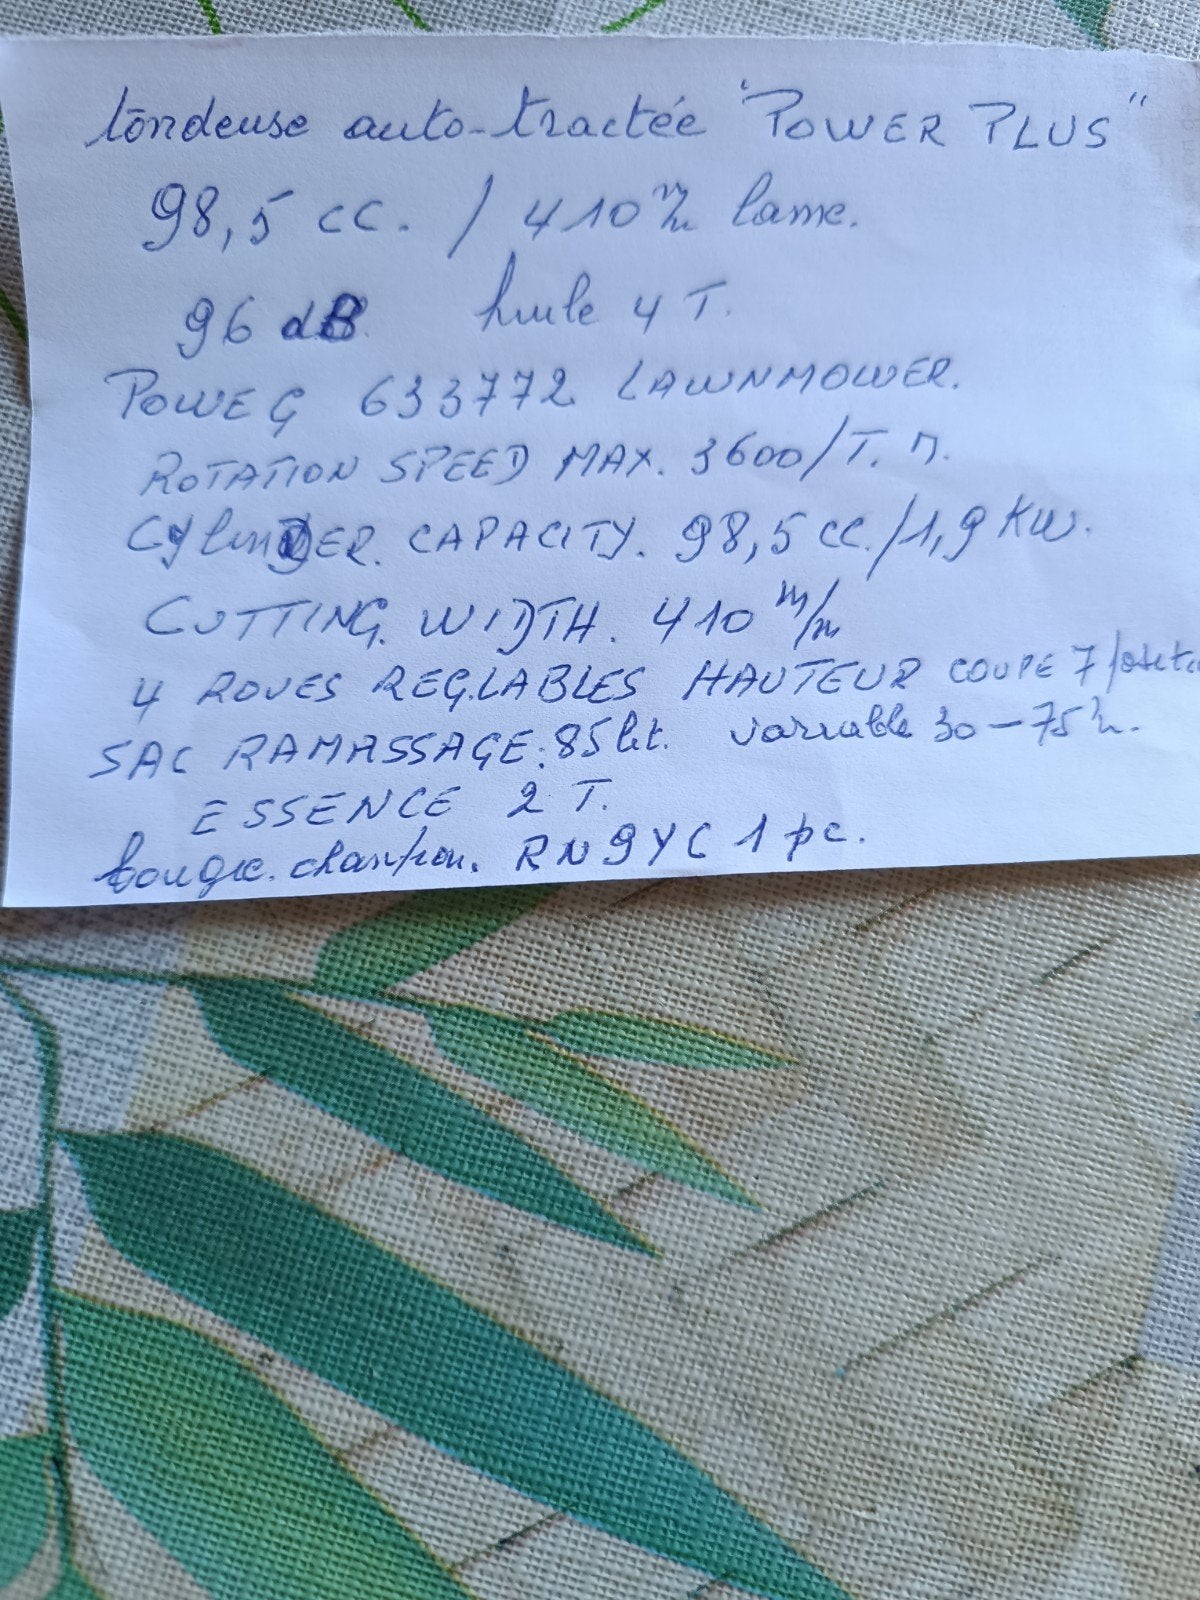 tondeuse auto-tractée "POWER PLUS"
98,5 cc. / 410 m/m lame.
96 dB. huile 4 T.
POWE G 633772 LAWNMOWER.
ROTATION SPEED MAX. 3600/T. M.
CylinDER. CAPACITY. 98,5 cc./1,9 KW.
CUTTING. WIDTH. 410 m/m
4 ROUES REGLABLES HAUTEUR COUPE 7
SAC RAMASSAGE: 85 lit. variable 30-75
ESSENCE 2 T.
bougie. champion. RN9YC 1 pc.